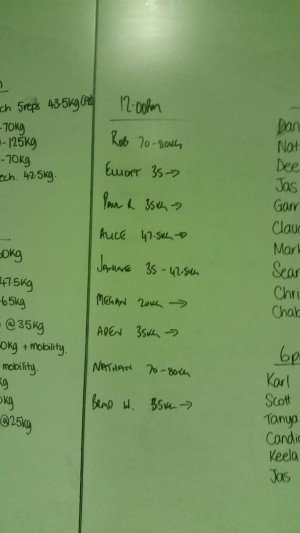 ch 5reps 43.5kg (PB)
-70kg
-125kg
-70kg
ech. 42.5kg.
0kg
47.5kg
65kg
@35kg
0kg + mobility.
mobility.
kg
0kg
@25kg
12.00pm
Rob 70-80kg
Elliott 35→
Paul R 35kg→
Alice 47.5kg→
Janine 35-42.5kg
Megan 20kg→
Aden 35kg→
Nathan 70-80kg
Brad W. 35kg→
Dan
Nat
Dee
Jas
Garr
Claud
Mark
Sean
Chri
Chal
6p
Karl
Scott
Tanya
Candic
Keela
Jas